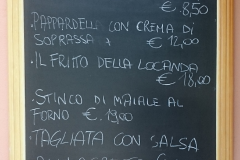 € 8,50
· PAPPARDELLE CON CREMA DI
SOPRASSA € 12,00
· IL FRITTO DELLA LOCANDA
€ 18,00
· STINCO DI MAIALE AL
FORNO € 19,00
· TAGLIATA CON SALSA